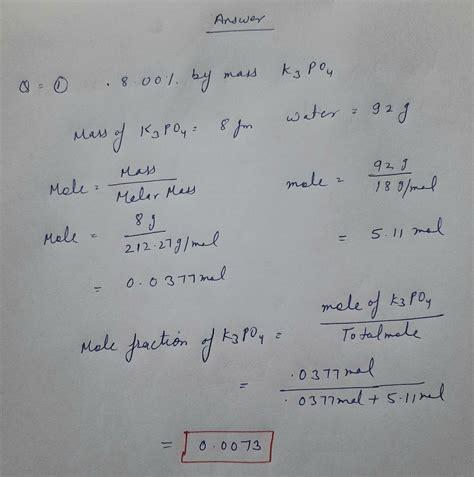 Answer
Q = ① . 8.00%. by mass K3PO4
Mass of K3PO4 = 8 gm water = 92 g
Mole = Mass / Molar Mass mole = 92 g / 18 g/mol
Mole = 8 g / 212.27 g/mol = 5.11 mol
= 0.0377 mol
Mole fraction of K3PO4 = mole of K3PO4 / Total mole
= .0377 mol / .0377 mol + 5.11 mol
= 0.0073